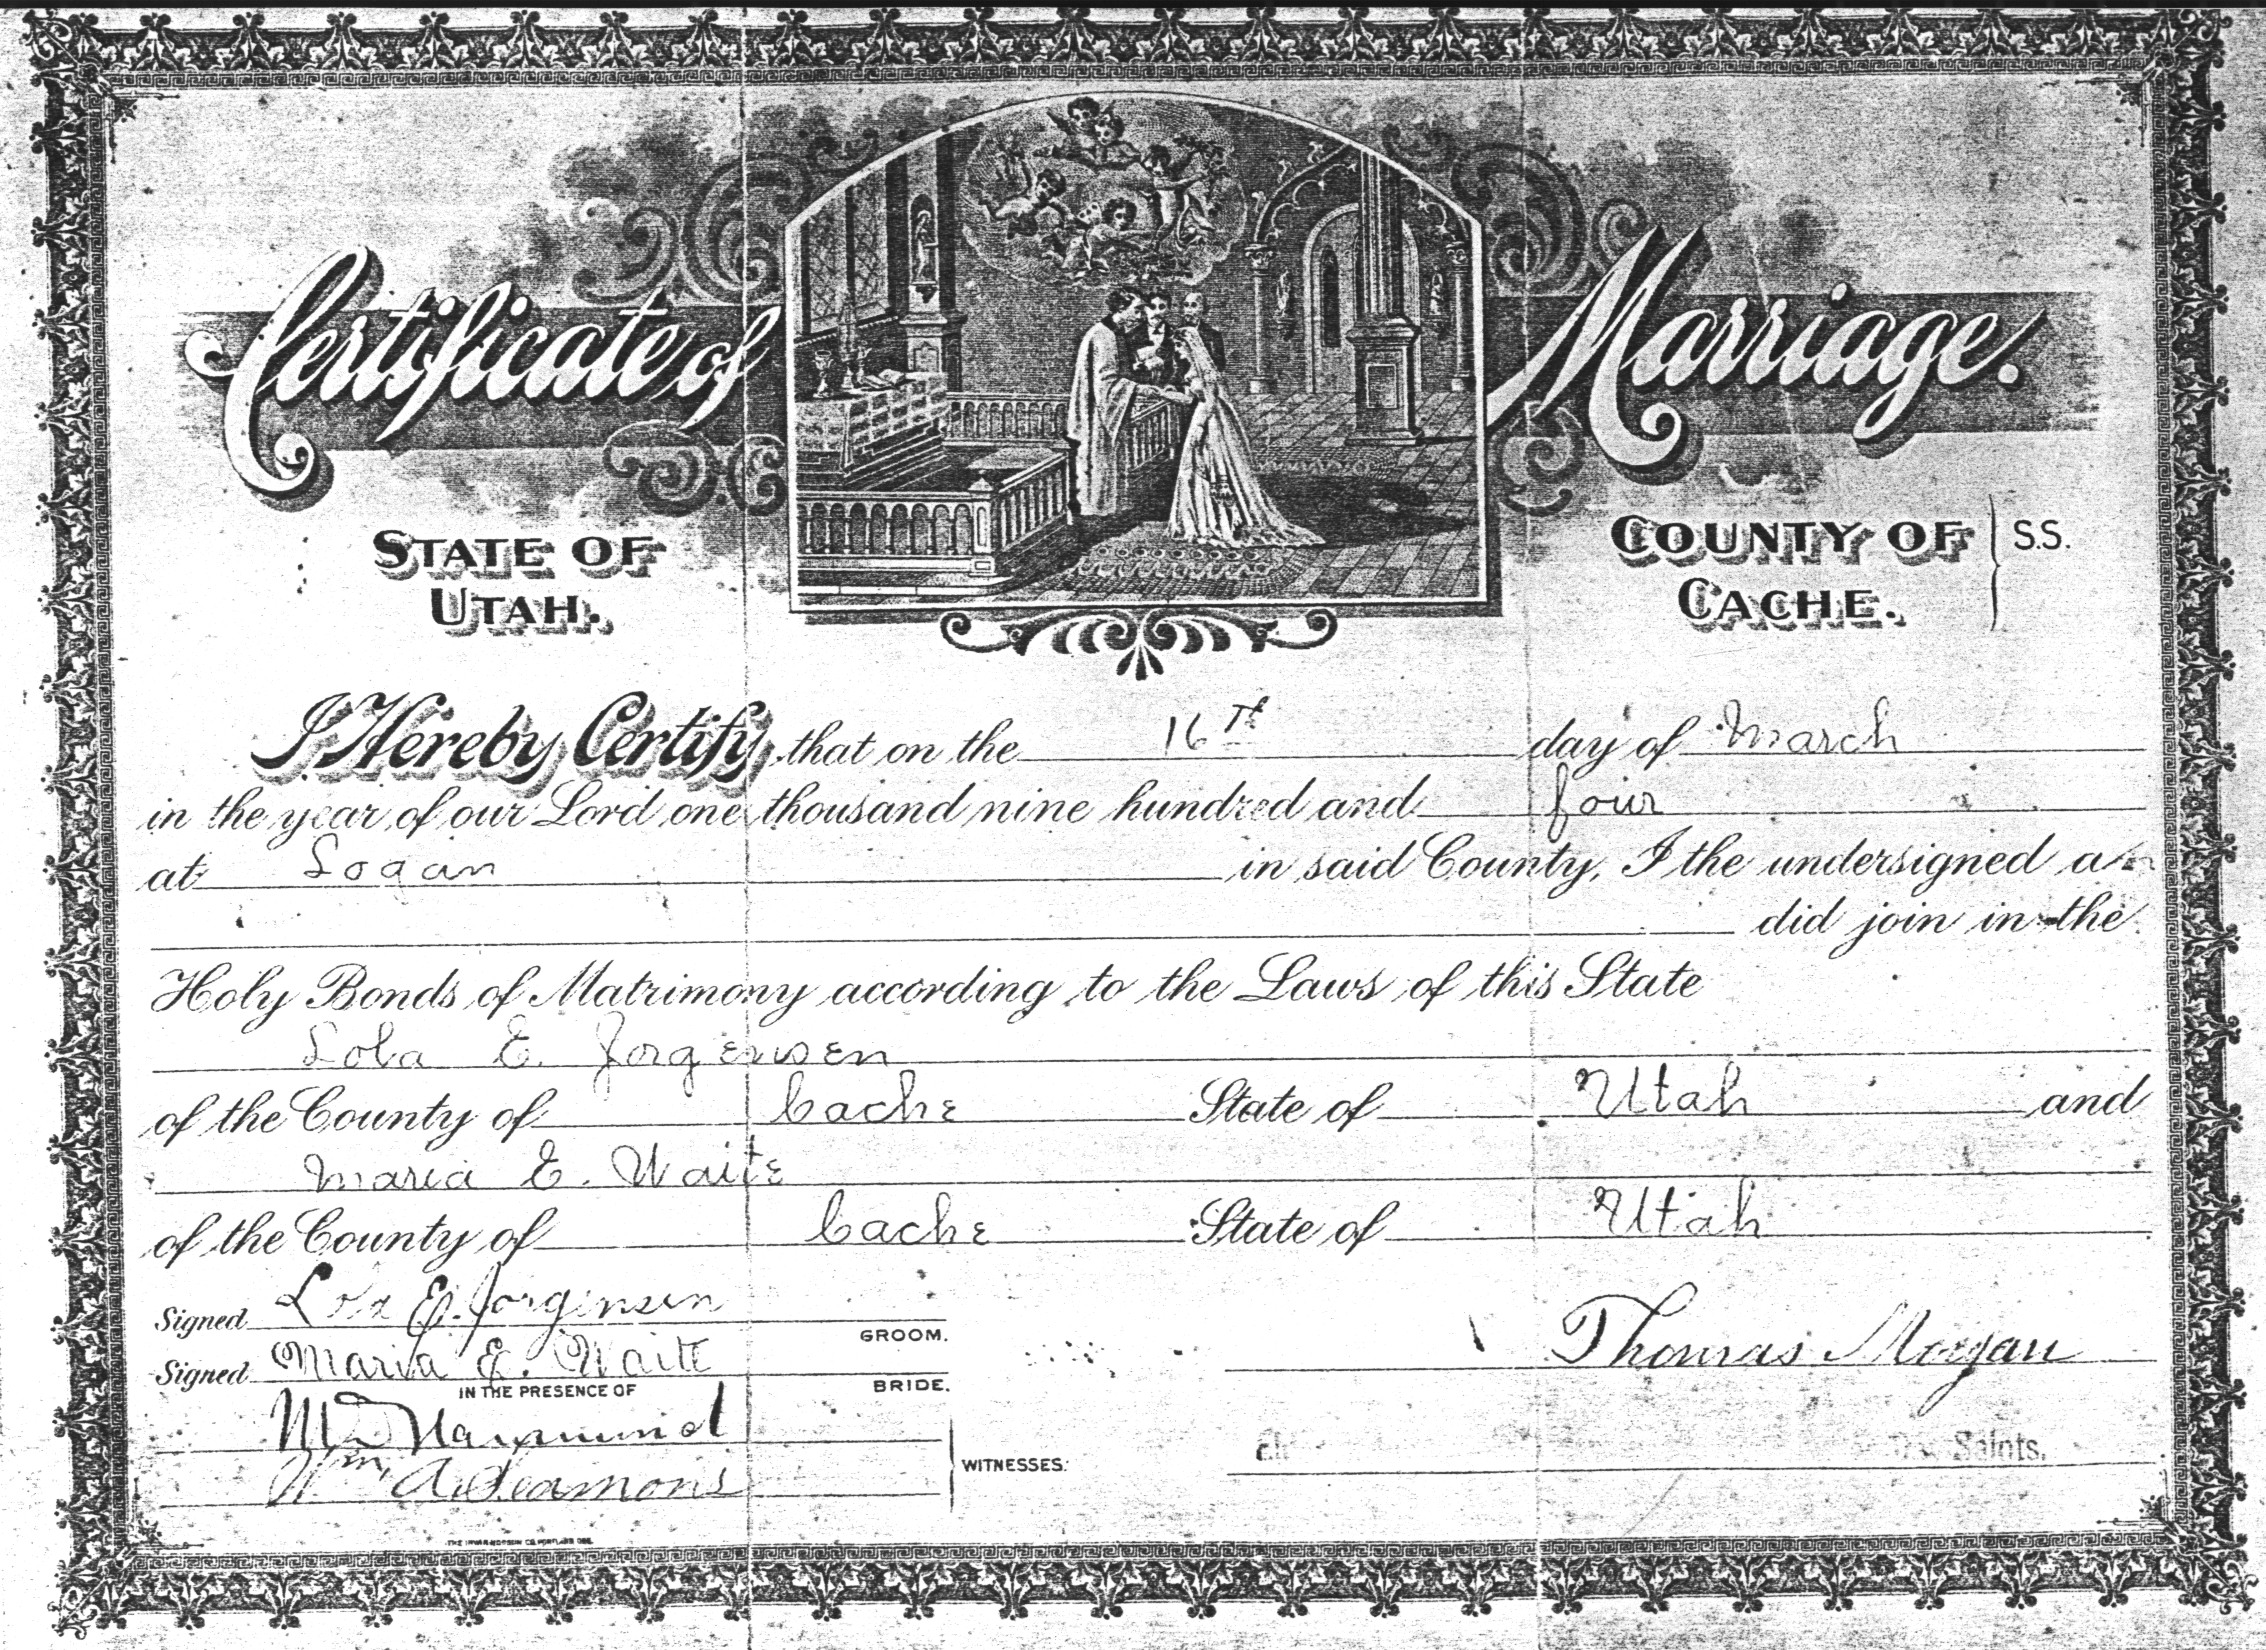 Certificate of Marriage.
STATE OF UTAH.
COUNTY OF CACHE. S.S.
I Hereby Certify, that on the 16th day of March
in the year of our Lord one thousand nine hundred and four
at Logan in said County, I the undersigned an
did join in the
Holy Bonds of Matrimony according to the Laws of this State
Lola E. Jorgensen
of the County of Cache State of Utah and
Maria E. Waite
of the County of Cache State of Utah
Signed E. Jorgensen
GROOM.
Thomas Morgan
Signed Maria E. Waite
IN THE PRESENCE OF
BRIDE.
Hammond
Saints.
WITNESSES:
Wm. A. Seamons